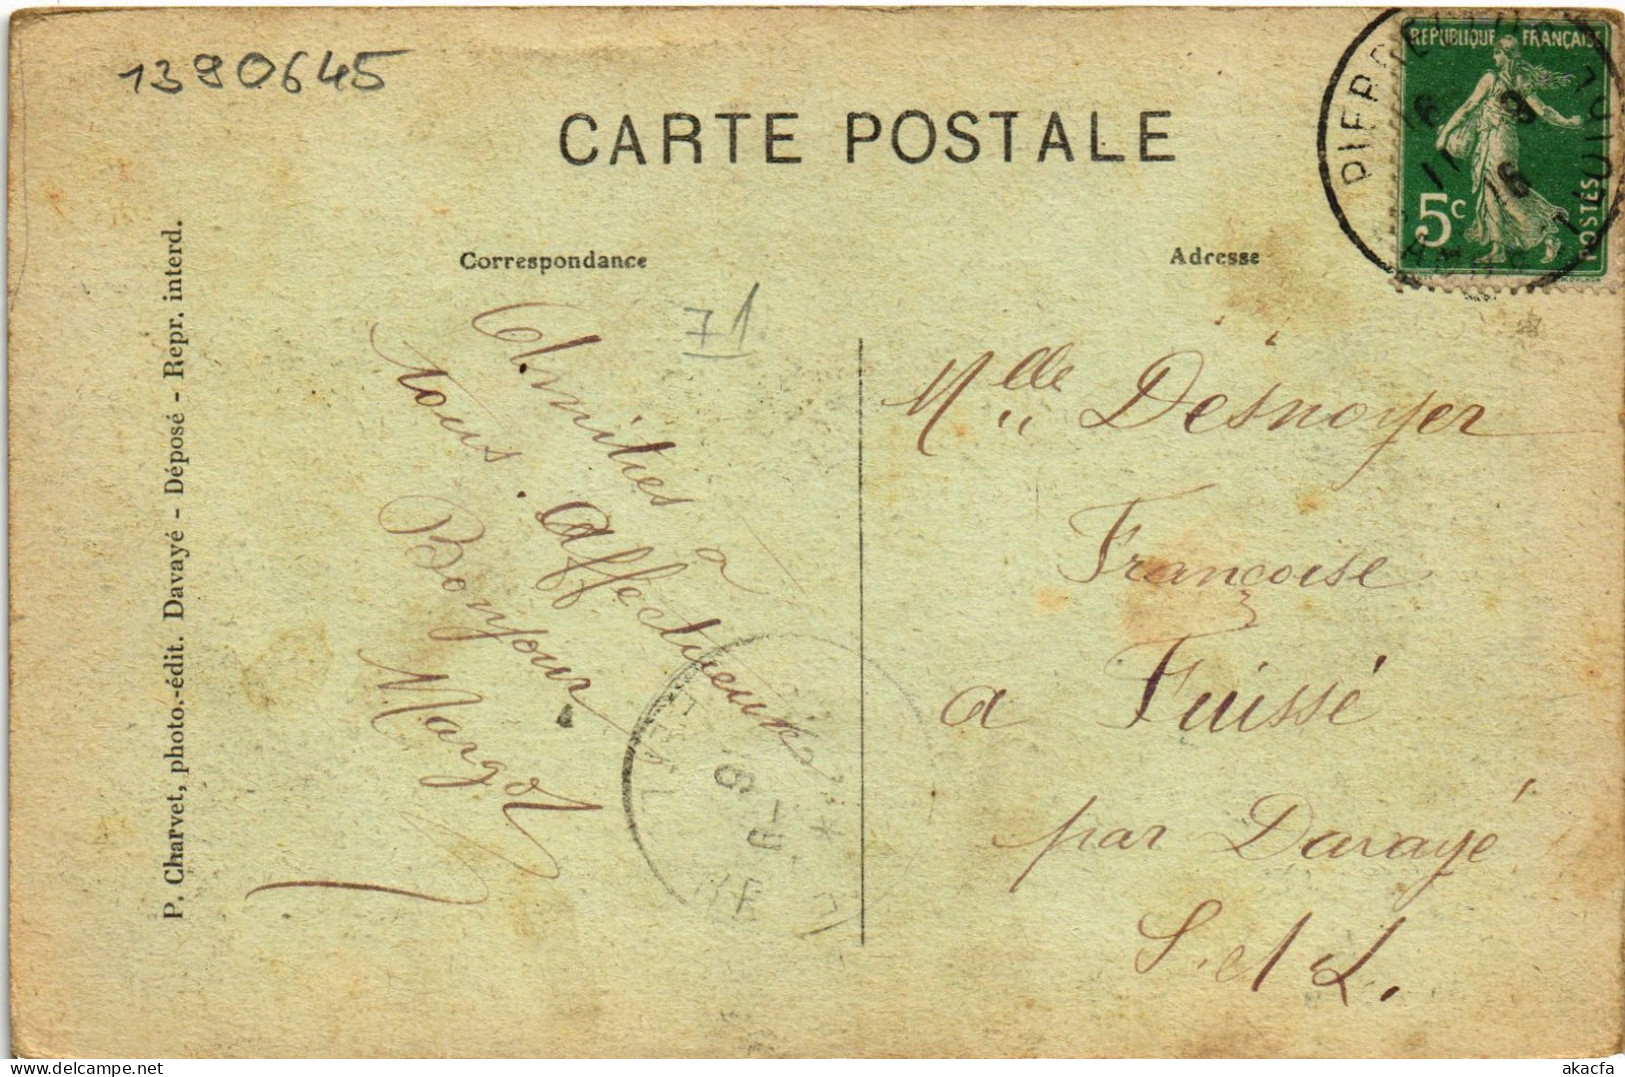 1390645
CARTE POSTALE
REPUBLIQUE FRANÇAISE
5c
POSTES
Correspondance
Adresse
71
Amitiés à
tous. Affectueux
Bonjour
Margot
Melle Desnoyer
Françoise
a Fuissé
par Davayé
S. et L.
P. Charvet, photo.-édit. Davayé - Déposé - Repr. interd.
delcampe.net
akacfa